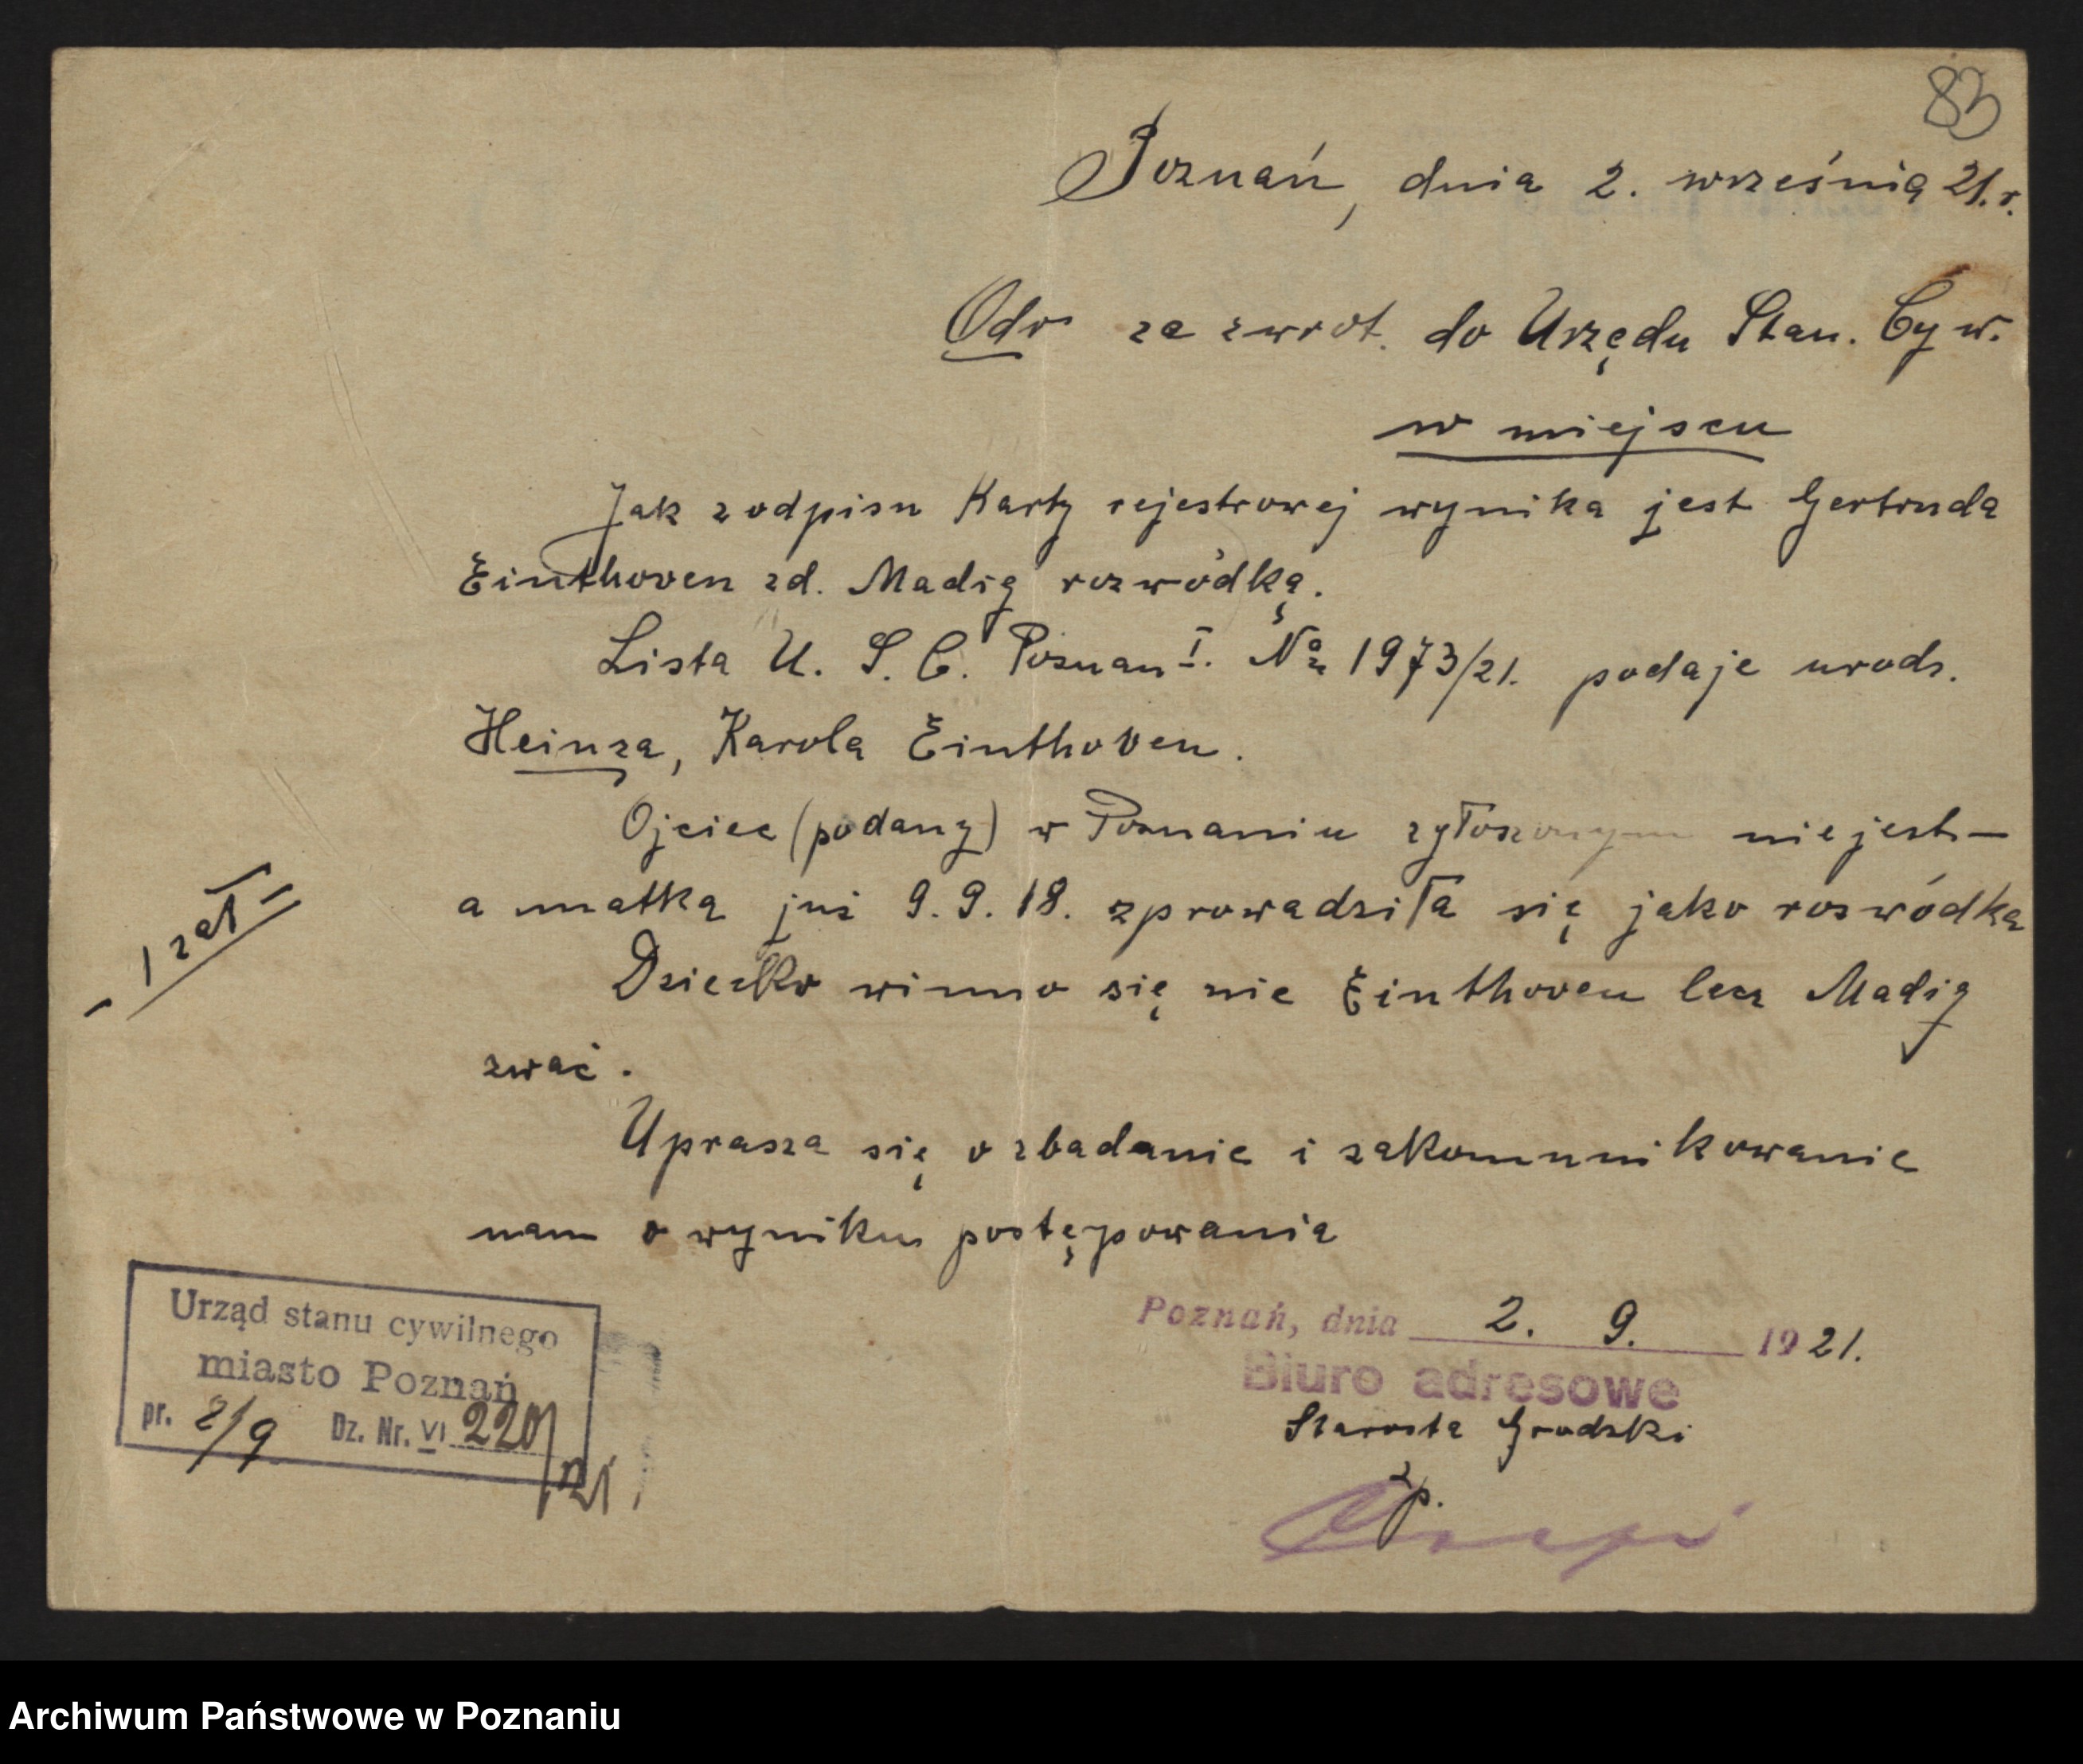 83
Poznań, dnia 2. września 21. r.
Odr za zwrot. do Urzędu Stan. Cyw.
w miejscu
Jak z odpisu Karty rejestrowej wynika jest Gertruda
Einthoven zd. Madig rozwódką.
Lista U. S. C. Poznan I. No 1973/21. podaje urodz.
Heinza, Karola Einthoven.
Ojciec (podany) w Poznaniu zgłoszonym nie jest —
a matka już 9. 9. 18. zprowadziła się jako rozwódka
Dziecko winno się nie Einthoven lecz Madig
zwać.
Uprasza się o zbadanie i zakomunikowanie
nam o wyniku postępowania
1 zał
Urząd stanu cywilnego
miasto Poznań
pr. 2/9 Dz. Nr. VI 220/21.
Poznań, dnia 2. 9. 1921.
Biuro adresowe
Starosta Grodzki
zp.
Archiwum Państwowe w Poznaniu